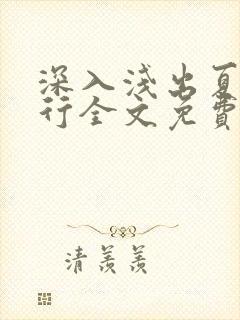 深入浅出夏
行全文免费
清羡羡